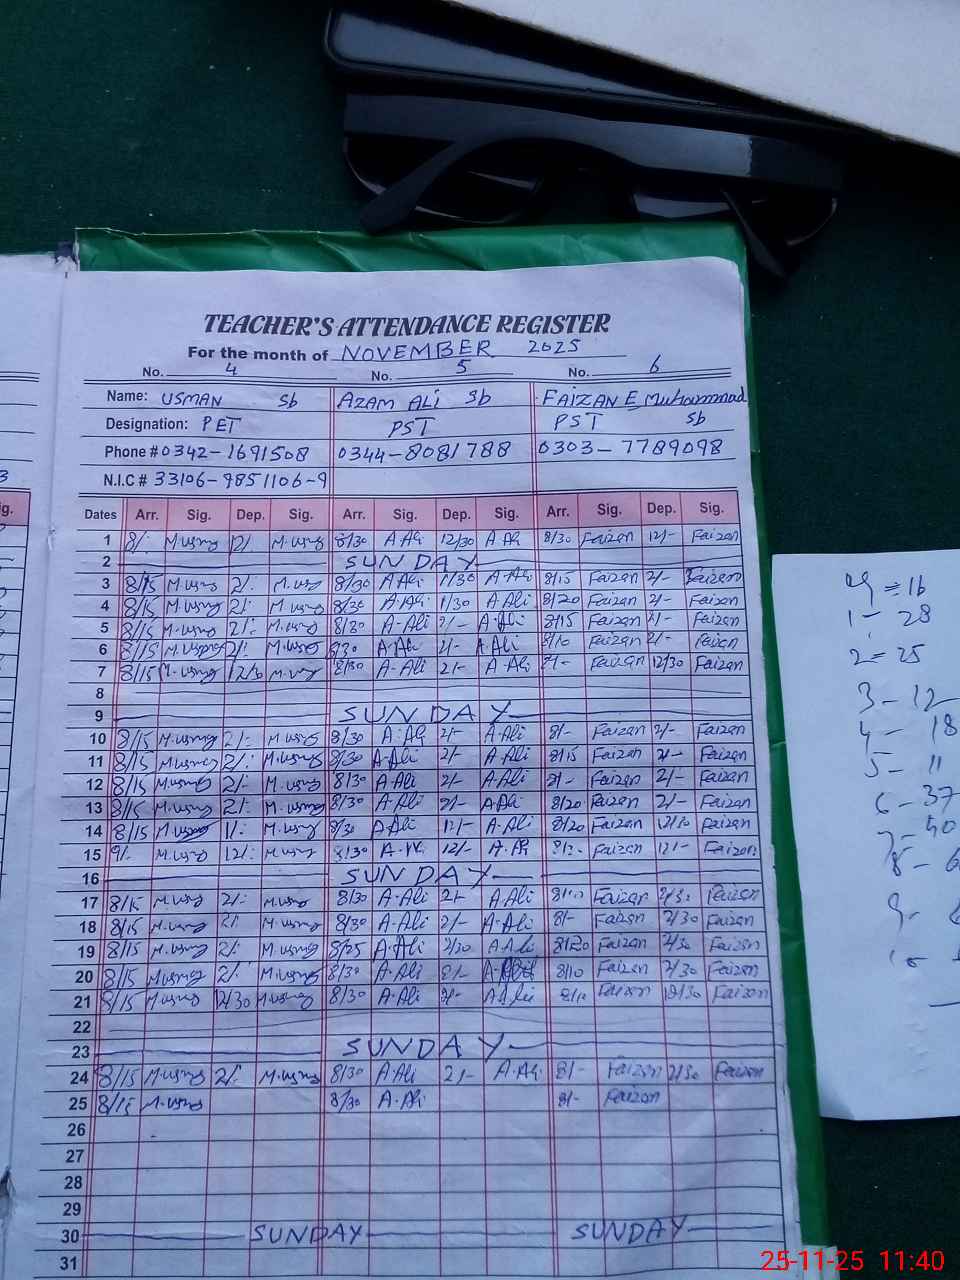 TEACHER'S ATTENDANCE REGISTER
For the month of NOVEMBER 2025
No. 4 No. 5 No. 6
Name: USMAN Sb AZAM ALI Sb FAIZAN E Muhammad Sb
Designation: PET PST PST
Phone # 0342-1691508 0344-8081788 0303-7789098
N.I.C # 33106-9851106-9
Dates Arr. Sig. Dep. Sig. Arr. Sig. Dep. Sig. Arr. Sig. Dep. Sig.
1 8/: M.usmg 12/: M.usmg 8/30 A Ali 12/30 A Ali 8/30 Faizan 12/- Faizan
2 SUNDAY
3 8/15 M.usmg 2/: M.usmg 8/30 A Ali 1/30 A-Ali 8/15 Faizan 2/- Faizan
4 8/15 M.usmg 2/: M.usmg 8/30 A-Ali 1/30 A Ali 8/20 Faizan 2/- Faizan
5 8/15 M.usmg 2/: M.usmg 8/30 A-Ali 2/- A-Ali 8/15 Faizan 2/- Faizan
6 8/15 M.usmg 2/: M.usmg 8/30 A-Ali 2/- A.Ali 8/10 Faizan 2/- Faizan
7 8/15 M.usmg 12/30 M.usmg 8/30 A-Ali 2/- A Ali 8/- Faizan 12/30 Faizan
8
9 SUNDAY
10 8/15 M.usmg 2/: M.usmg 8/30 A.Ali 2/- A.Ali 8/- Faizan 2/- Faizan
11 8/15 M.usmg 2/: M.usmg 8/30 A-Ali 2/- A-Ali 8/15 Faizan 2/- Faizan
12 8/15 M.usmg 2/: M.usmg 8/30 A-Ali 2/- A-Ali 8/- Faizan 2/- Faizan
13 8/15 M.usmg 2/: M.usmg 8/30 A-Ali 2/- A-Ali 8/20 Faizan 2/- Faizan
14 8/15 M.usmg 11/: M.usmg 8/30 A Ali 12/- A-Ali 8/20 Faizan Faizan
15 9/- M.usmg 12/: M.usmg 8/30 A-Ali 12/- A-Ali Faizan 12/- Faizan
16 SUNDAY
17 8/15 M.usmg 2/: M.usmg 8/30 A-Ali 2/- A.Ali Faizan 2/30 Faizan
18 8/15 M.usmg 2/: M.usmg 8/30 A-Ali 2/- A-Ali 8/- Faizan 2/30 Faizan
19 8/15 M.usmg 2/: M.usmg 8/25 A-Ali 2/30 A Ali 8/20 Faizan 2/30 Faizan
20 8/15 M.usmg 2/: M.usmg 8/30 A-Ali 2/- A-Ali 8/10 Faizan 2/30 Faizan
21 8/15 M.usmg 12/30 M.usmg 8/30 A-Ali 2/- A Ali 8/10 Faizan 12/30 Faizan
22
23 SUNDAY
24 8/15 M.usmg 2/: M.usmg 8/30 A Ali 2/- A.Ali 8/- Faizan 2/30 Faizan
25 8/15 M.usmg 8/30 A-Ali 8/- Faizan
26
27
28
29
30 SUNDAY SUNDAY
31
ig.
16
1- 28
2= 25
3- 12
4- 18
5- 11
6- 37
7- 40
8- 6
9-
25-11-25 11:40